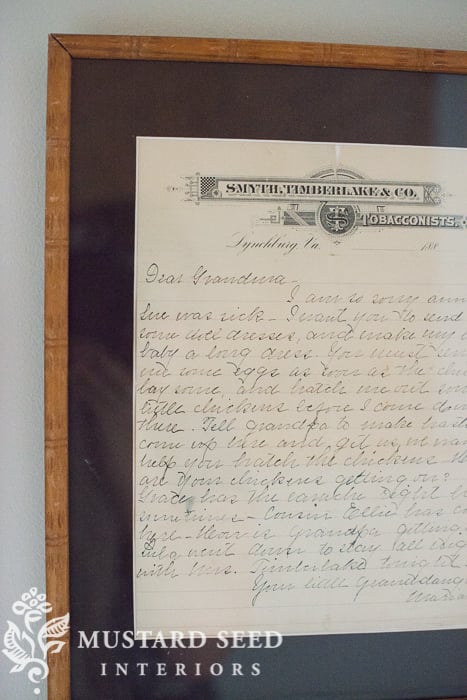 SMYTH, TIMBERLAKE & CO.
TOBACCONISTS.
Lynchburg, Va. 188
Dear Grandma-
I am so sorry
Sue was sick - I want you to send
some doll dresses, and make my
baby a long dress. You must
me some eggs as soon as the
lay some, and hatch me out
little chickens before I come
there. Tell grandpa to make haste
come up here and get us,
help you hatch the chickens -
are your chickens getting on?
Gracie has the earache
sometimes - Cousin Ellie has
here - How is Grandpa getting
went down to stay all
with Mrs. Timberlake
Your little
MUSTARD SEED
INTERIORS